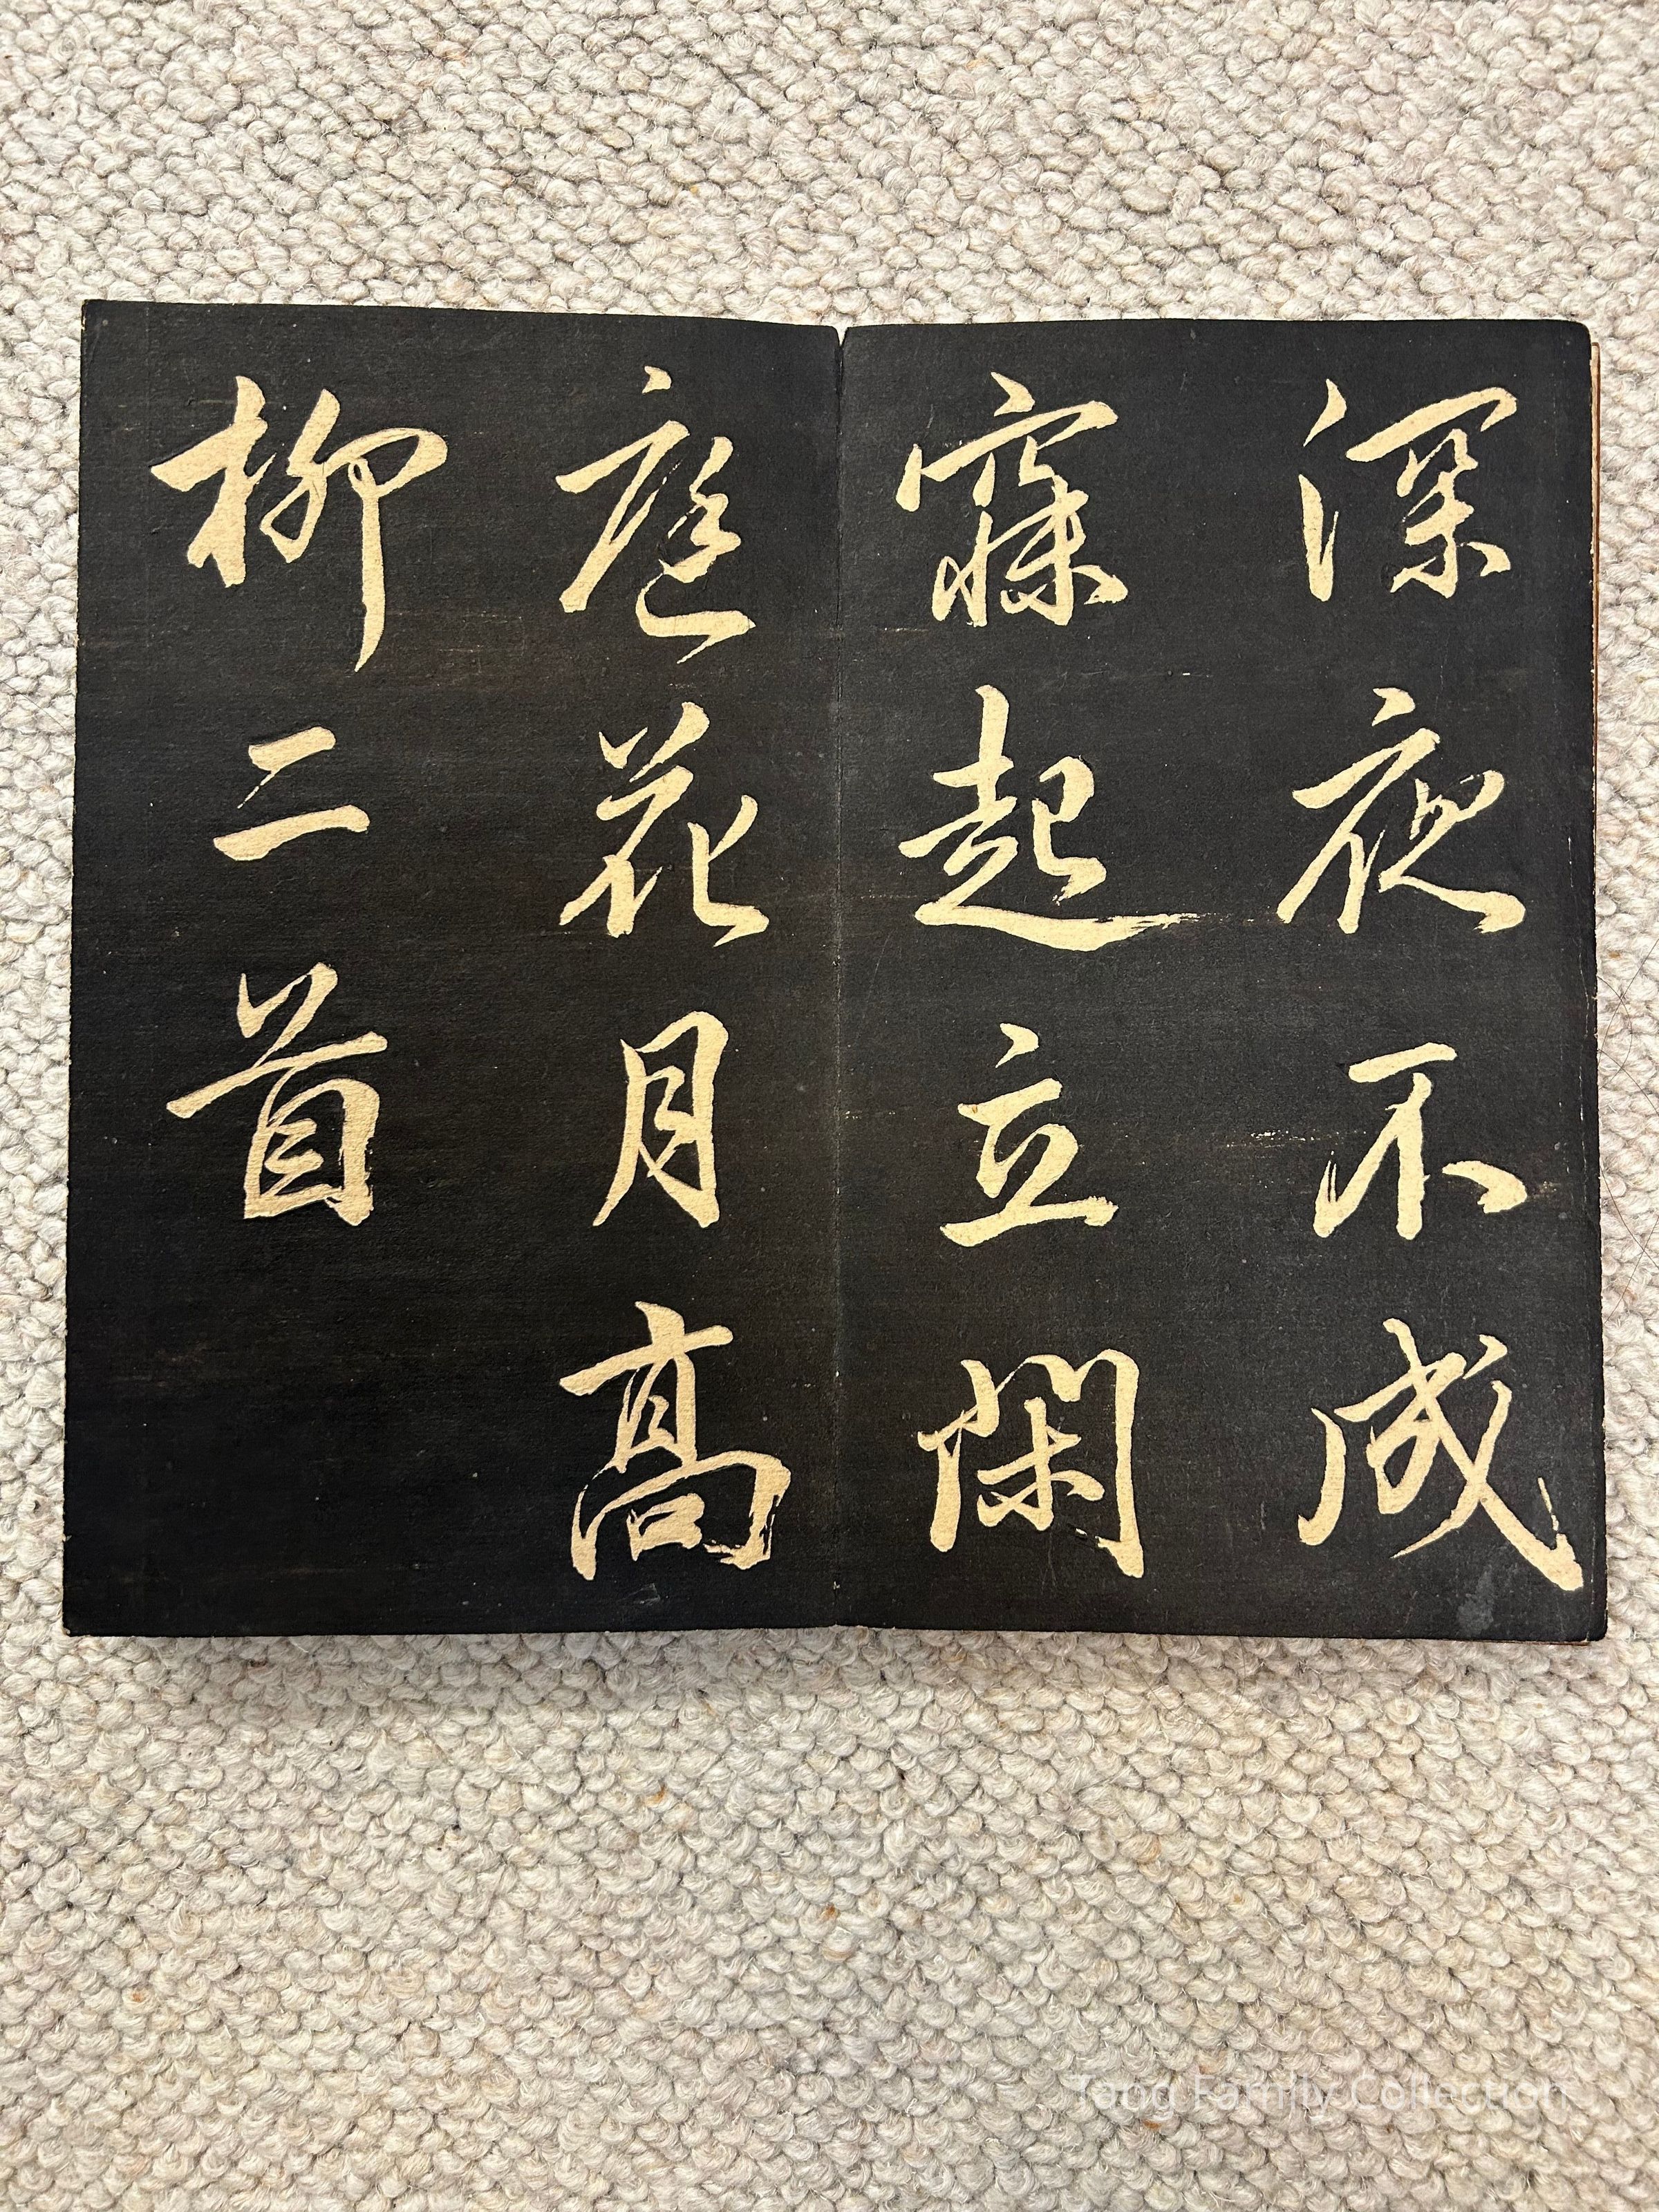 深夜不成
寐起立閑
庭花月高
柳二首
Tang Family Collection